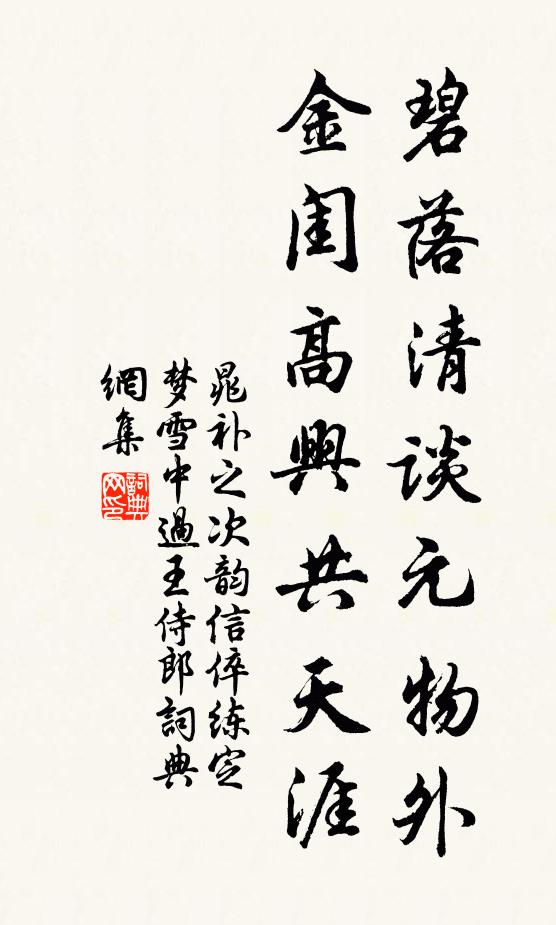 碧落清谈元物外
金闺高興共天涯
晁补之次韵信倅练定
梦雪中過王侍郎詞典
網集
詞典
网印